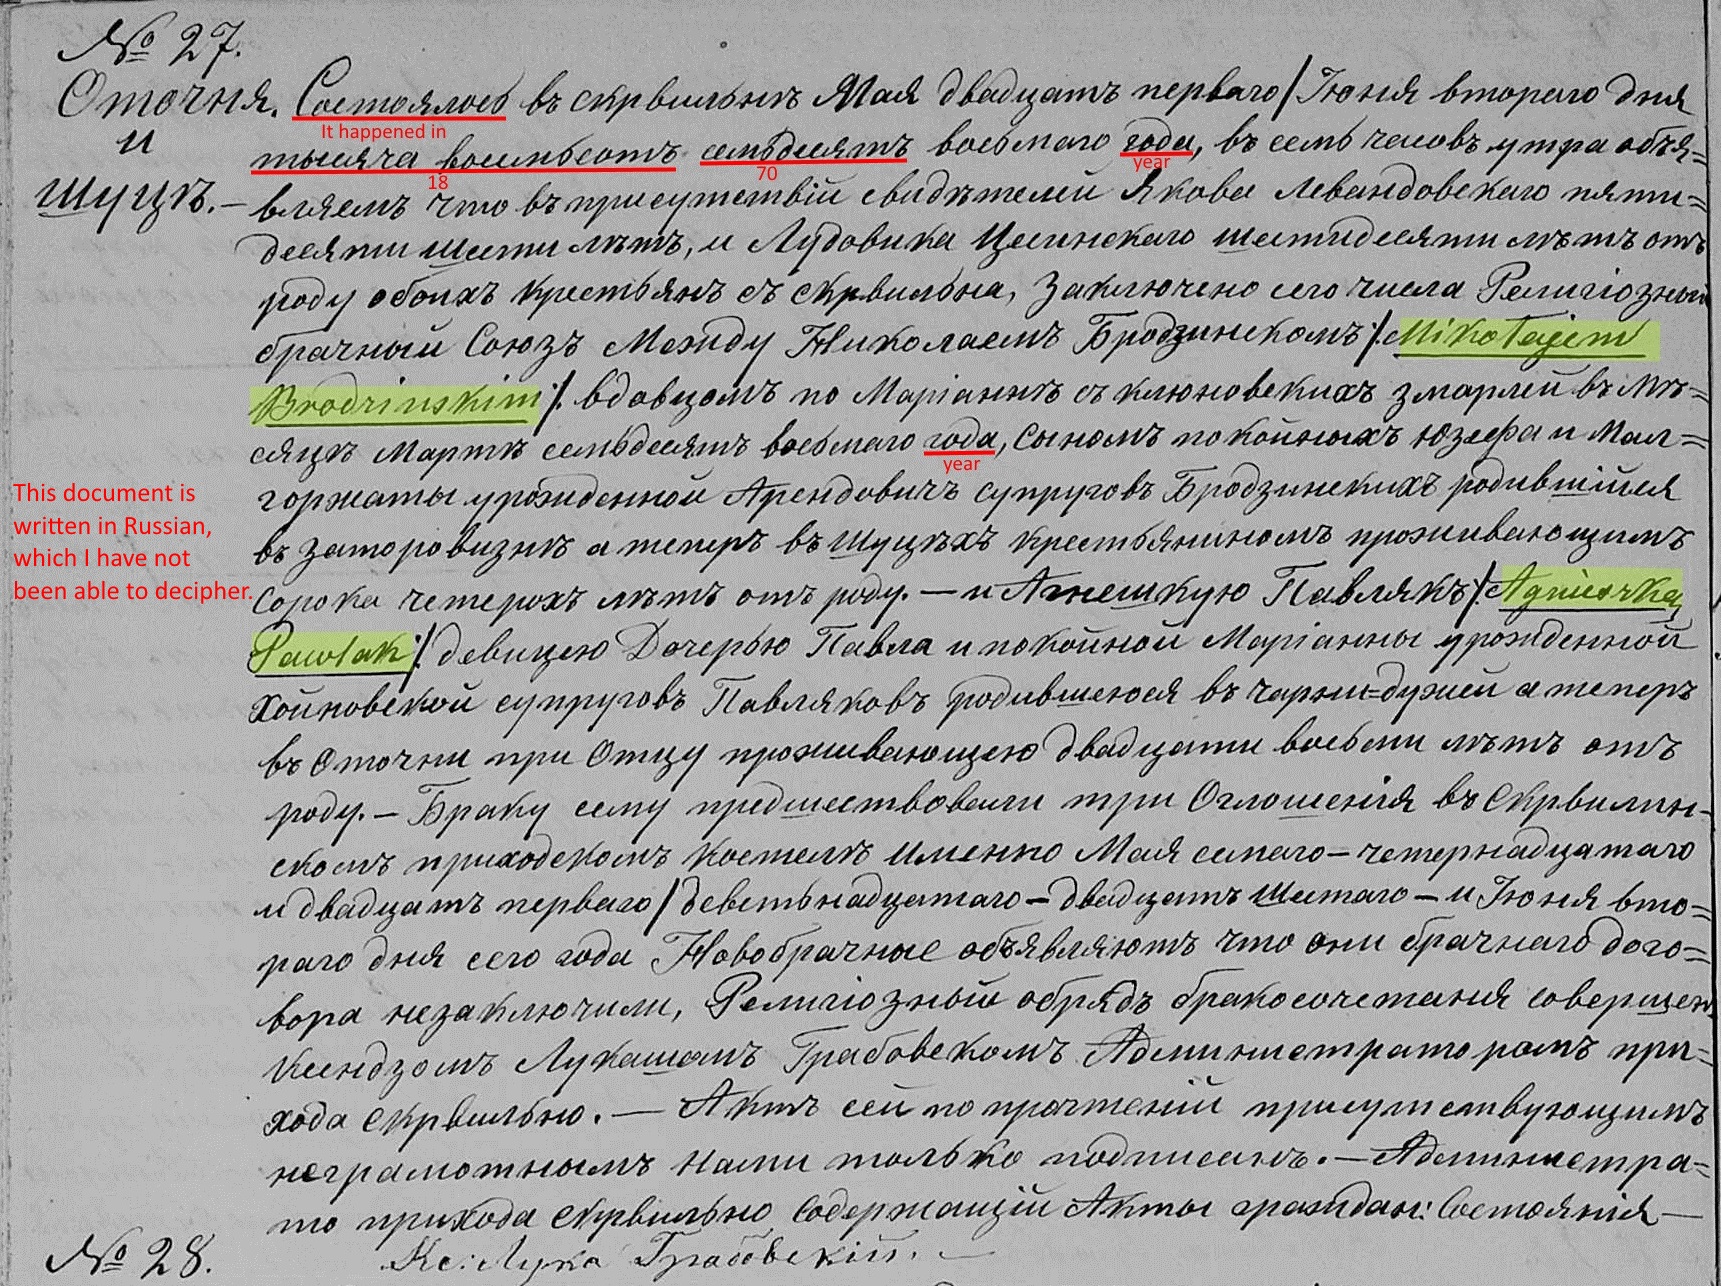 № 27.
Оточня.
и
Шуцъ. –
Состоялось въ скрвильнъ Мая двадцатъ перваго / Іюня втораго дня
It happened in
тысяча восемьсотъ семьдесятъ восьмаго года, въ семь часовъ утра объя=
18 70 year
вляемъ что въ присутствіи свидѣтелей Якова Левандовскаго пяти=
десяти шести лѣтъ, и Лудовика Цесинскаго шестидесяти лѣтъ отъ
роду обоихъ крестьянъ съ скрвильна, Заключено сего числа Религіозный
брачный Союзъ Между Николаемъ Бродзинскомъ /: Mikołajem
Brodzinskim /: вдовцомъ по Маріаннѣ съ клюновскихъ змарлей въ мѣ=
сяцѣ Мартѣ семьдесятъ восьмаго года, сыномъ покойныхъ Юзефа и Мал=
year
горжаты урожденной Арендовичъ супруговъ Бродзинскихъ родившійся
въ заторовизнѣ а теперъ въ Шуцѣхъ крестьяниномъ проживающимъ
This document is
written in Russian,
which I have not
been able to decipher.
сорока четерохъ лѣтъ отъ роду. – и Агнешкую Павлякъ /: Agnieszką
Pawlak /: девицею Дочерью Павла и покойной Маріанны урожденной
Хойновской супруговъ Павляковъ родившеюся въ чарни=дужей а теперъ
въ Оточни при Отцу проживающею двадцати восьми лѣтъ отъ
роду. – Браку сему предшествовали три Оглошенія въ Скрвилин-
скомъ приходскомъ костелѣ именно Мая семаго – четернадцатаго
и двадцатъ перваго / деветьнадцатаго – двадцатъ шестаго – и Іюня вто=
раго дня сего года Новобрачные объявляютъ что они брачнаго дого=
вора незаключили, Религіозный обрядъ бракосочетания совершен
Ксендзомъ Лукашомъ Грабовскомъ Администраторомъ при=
хода скрвильно. – Актъ сей по прочтеніи присутствующимъ
неграмотнымъ нами только подписанъ. – Администра=
то прихода скрвильно содержащій Акты граждан: Состоянія –
Кс: Лука Грабовскій. –
№ 28.